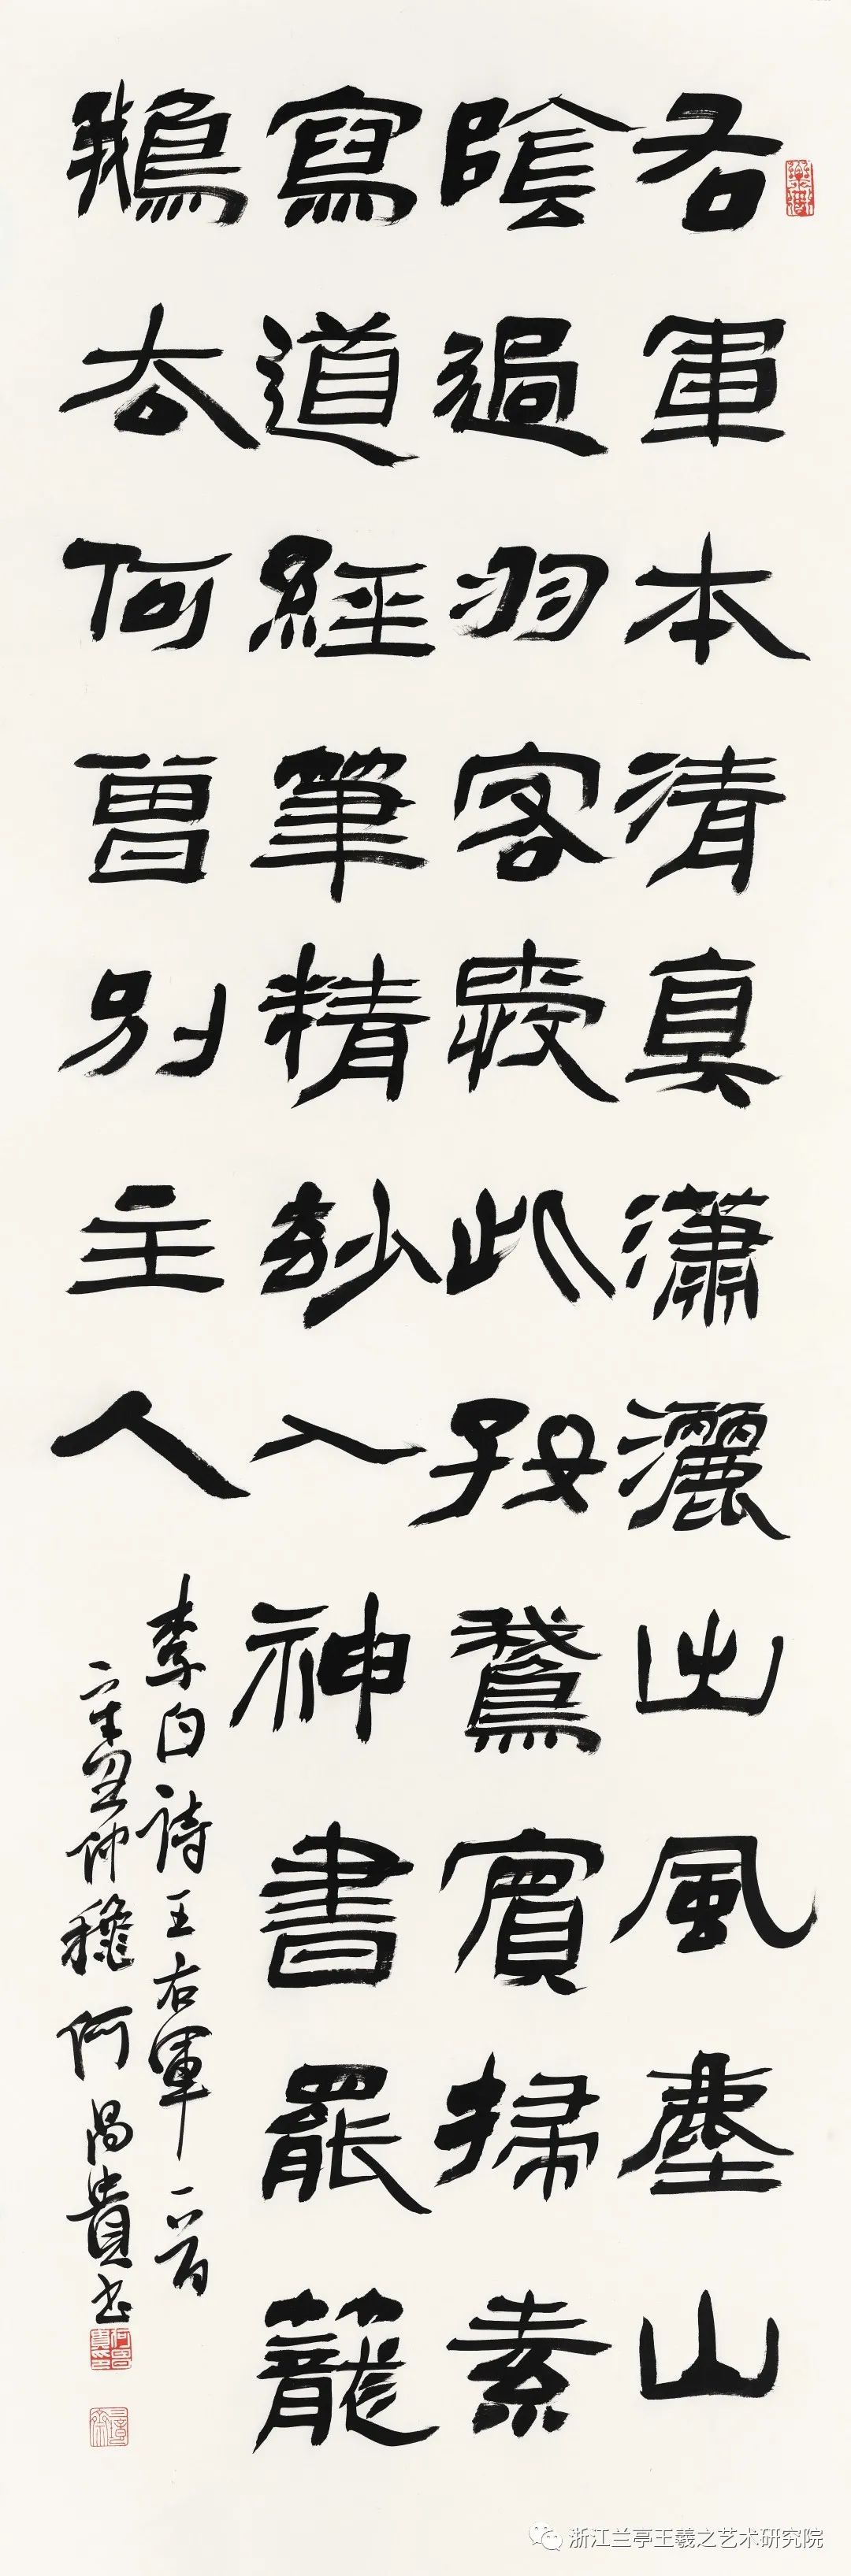 右軍本清真瀟灑出風塵山
陰過羽客愛此好鵞賓掃素
寫道經筆精玅入神書罷籠
鵝去何曾別主人
李白詩王右軍一首
辛丑仲穐何昌貴书
浙江兰亭王羲之艺术研究院